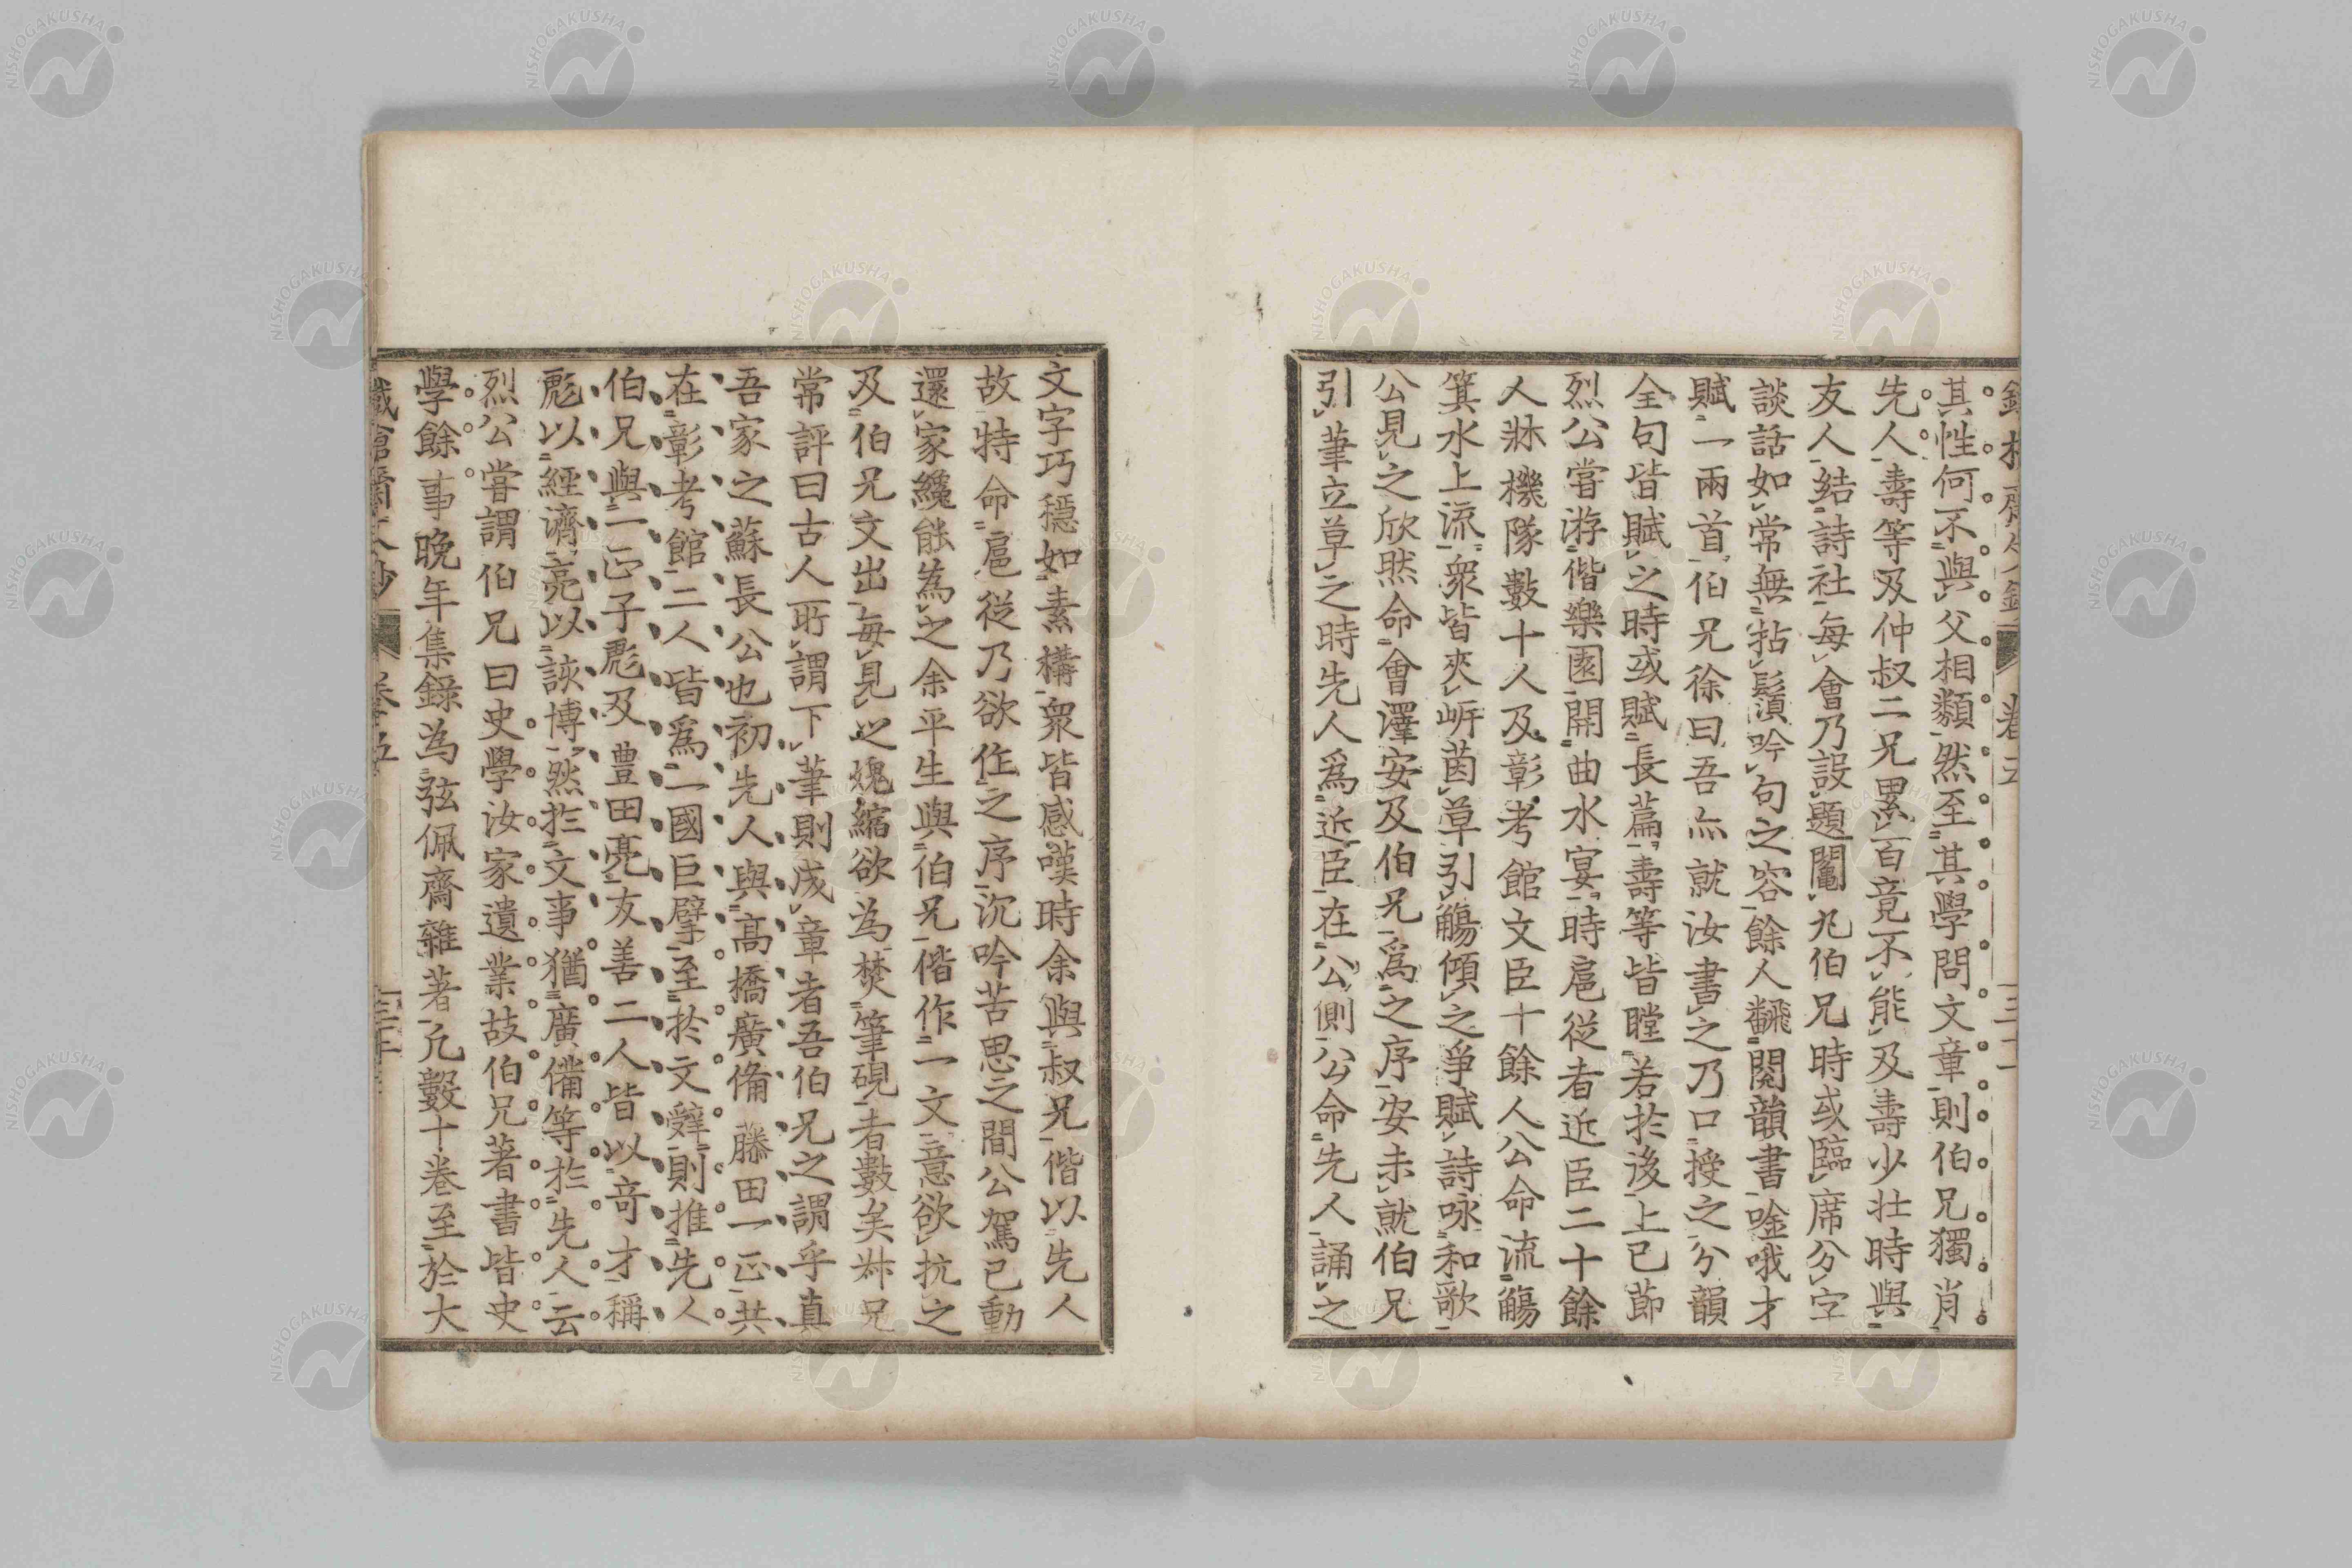 其性何不與父相類然至其學問文章則伯兄獨肖
先人壽等及仲叔二兄累百竟不能及壽少壯時與
友人結詩社每會乃設題鬮凡伯兄時或臨席分字
談話如常無拈鬚吟句之容餘人飜閱韻書唫哦才
賦一兩首伯兄徐曰吾亦就汝書之乃口授之分韻
全句皆賦之時或賦長篇壽等皆瞠若於後上巳節
烈公嘗游偕樂園開曲水宴時扈從者近臣二十餘
人牀機隊數十人及彰考館文臣十餘人公命流觴
箕水上流衆皆夾岍茵草引觴傾之爭賦詩咏和歌
公見之欣然命會澤安及伯兄爲之序安未就伯兄
引筆立草之時先人爲近臣在公側公命先人誦之
文字巧穩如素構衆皆感嘆時余與叔兄偕以先人
故特命扈從乃欲作之序沉吟苦思之間公駕已動
還家纔能為之余平生與伯兄偕作一文意欲抗之
及伯兄文出每見之媿縮欲為焚筆硯者數矣叔兄
常評曰古人所謂下筆則成章者吾伯兄之謂乎真
吾家之蘇長公也初先人與高橋廣備藤田一正共
在彰考館二人皆爲一國巨擘至於文辭則推先人
伯兄與一正子彪及豊田亮友善二人皆以奇才稱
彪以經濟亮以該博然於文事猶廣備等於先人云
烈公嘗謂伯兄曰史學汝家遺業故伯兄著書皆史
學餘事晚年集錄為弦佩齋雜著凡數十卷至於大
卷五